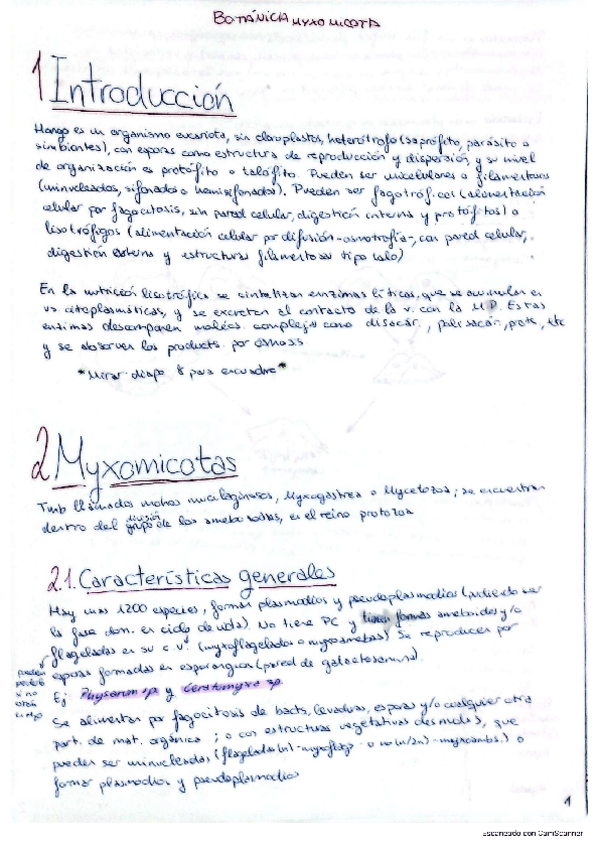 BOTÁNICA MYXOMICOTA
1 Introducción
Hongo es un organismo eucariota, sin cloroplastos, heterótrofo (saprófito, parásito o
simbiontes), con esporas como estructura de reproducción y dispersión, y su nivel
de organización es protófito o talófito. Pueden ser unicelulares o filamentosos
(uninucleados, sifonados o hemisifonados). Pueden ser fagotróficos (alimentación
celular por fagocitosis, sin pared celular, digestión interna y protófitos) o
lisotrófigos (alimentación celular por difusión -osmotrofia-, con pared celular,
digestión externa y estructuras filamentosas tipo talo)
En la nutrición lisotrófica se sintetizan enzimas líticas, que se acumulan en
vs. citoplasmáticas, y se excretan al contacto de la v. con la MP. Estas
enzimas descomponen moléc. complejas como disacár., polisacár, prote, etc
y se absorben los products. por ósmosis
*Mirar diapo 8 para encuadre*
2 Myxomicotas
Tmb llamados mohos mucilaginosos, Myxogastrea o Mycetozoa; se encuentran
división
dentro del grupo de los amebozoos, en el reino protozoa
2.1. Características generales
Hay unas 1200 especies, forman plasmodios y pseudoplasmodios (pudiendo ser
la fase dom. en ciclo de vida) No tiene PC y tienen formas ameboides y/o
flageladas en su c.v. (myxoflagelados o myxoamebas) Se reproducen por
esporas formadas en esporangios (pared de galactosamina).
pueden
perder
si no
Ej: Physarum sp y Ceratiomyxa sp
Se alimentan por fagocitosis de bacts, levaduras, esporas y/o cualquier otra
part. de mat. orgánica; o con estructuras vegetativas desnudas, que
pueden ser uninucleadas (flageladas (n) -myxoflag- o no (n/2n) -myxoambs.) o
formar plasmodios y pseudoplasmodios
1
Escaneado con CamScanner